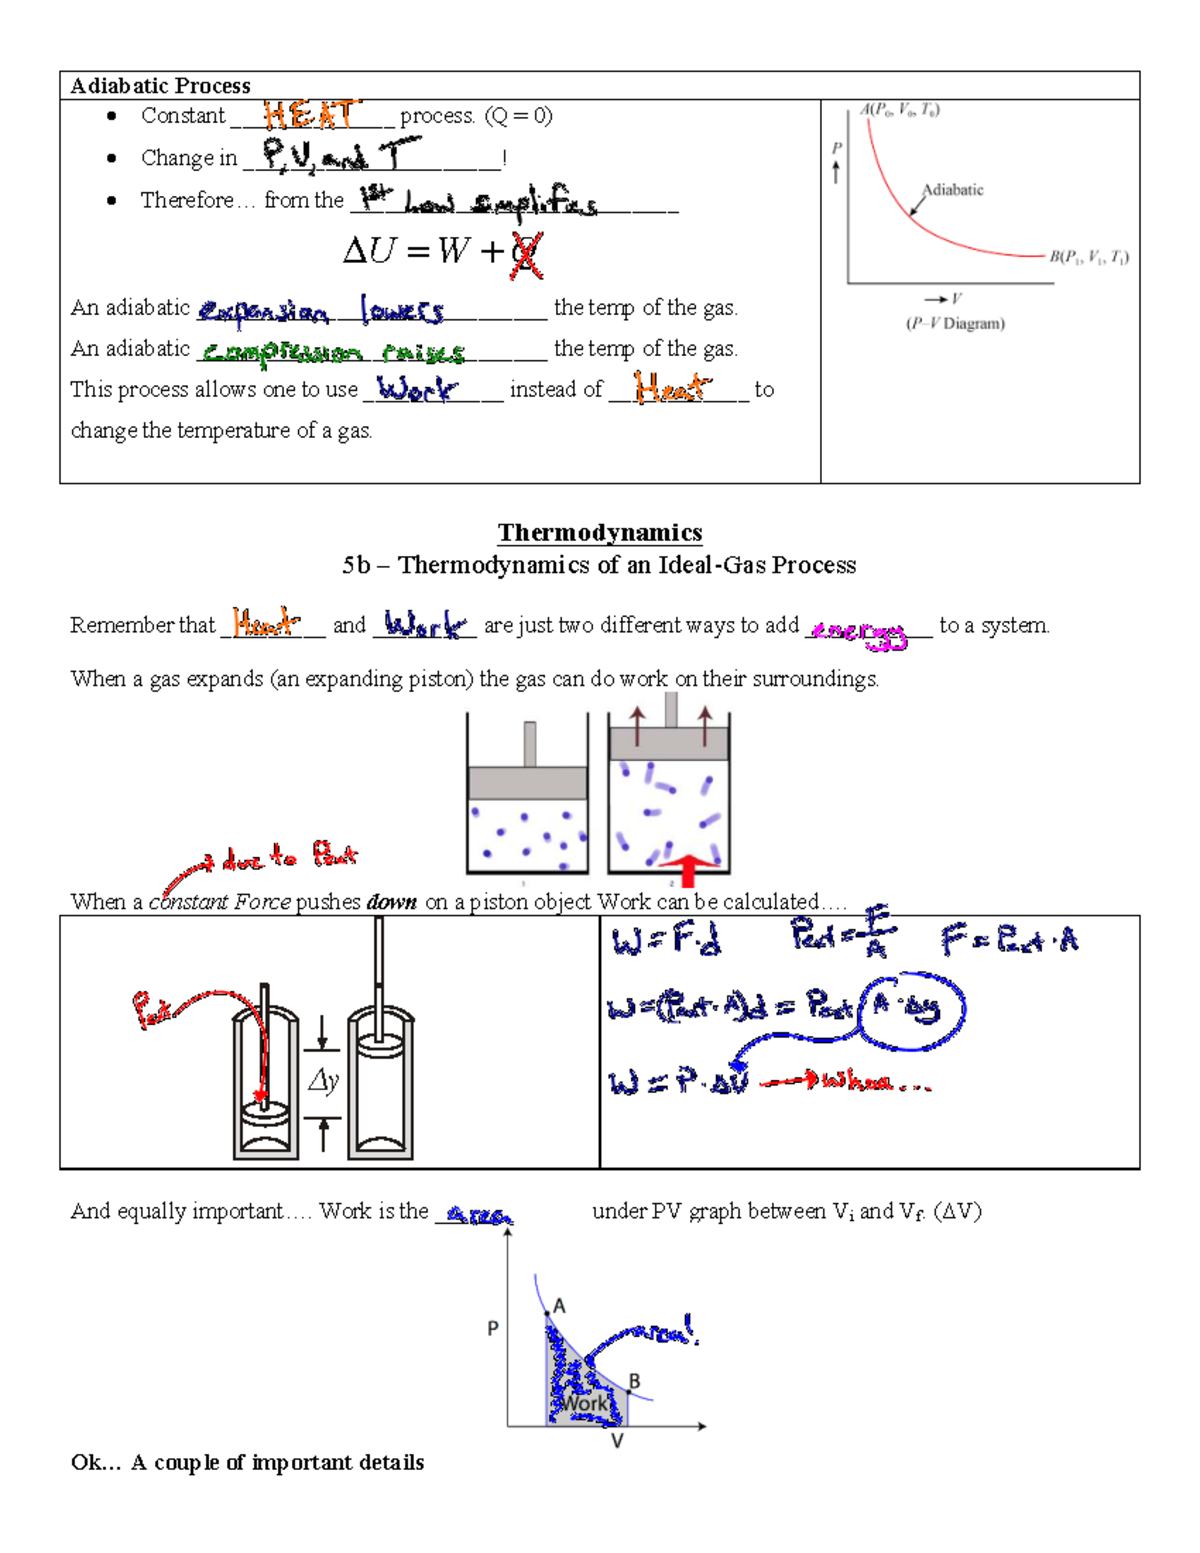 Adiabatic Process
• Constant HEAT process. (Q = 0)
• Change in P, V, and T!
• Therefore… from the 1st Law simplifies
ΔU = W + Q
An adiabatic expansion lowers the temp of the gas.
An adiabatic compression raises the temp of the gas.
This process allows one to use Work instead of Heat to
change the temperature of a gas.
A(P₀, V₀, T₀)
P
Adiabatic
B(P₁, V₁, T₁)
V
(P–V Diagram)
Thermodynamics
5b – Thermodynamics of an Ideal-Gas Process
Remember that Heat and Work are just two different ways to add energy to a system.
When a gas expands (an expanding piston) the gas can do work on their surroundings.
1
2
due to Pext
When a constant Force pushes down on a piston object Work can be calculated….
Pext
Δy
W = F·d Pext = F/A F = Pext·A
W = (Pext·A)d = Pext A·Δy
W = P·ΔV → Whoa...
And equally important…. Work is the area under PV graph between Vi and Vf. (ΔV)
P
A
area!
B
Work
V
Ok… A couple of important details